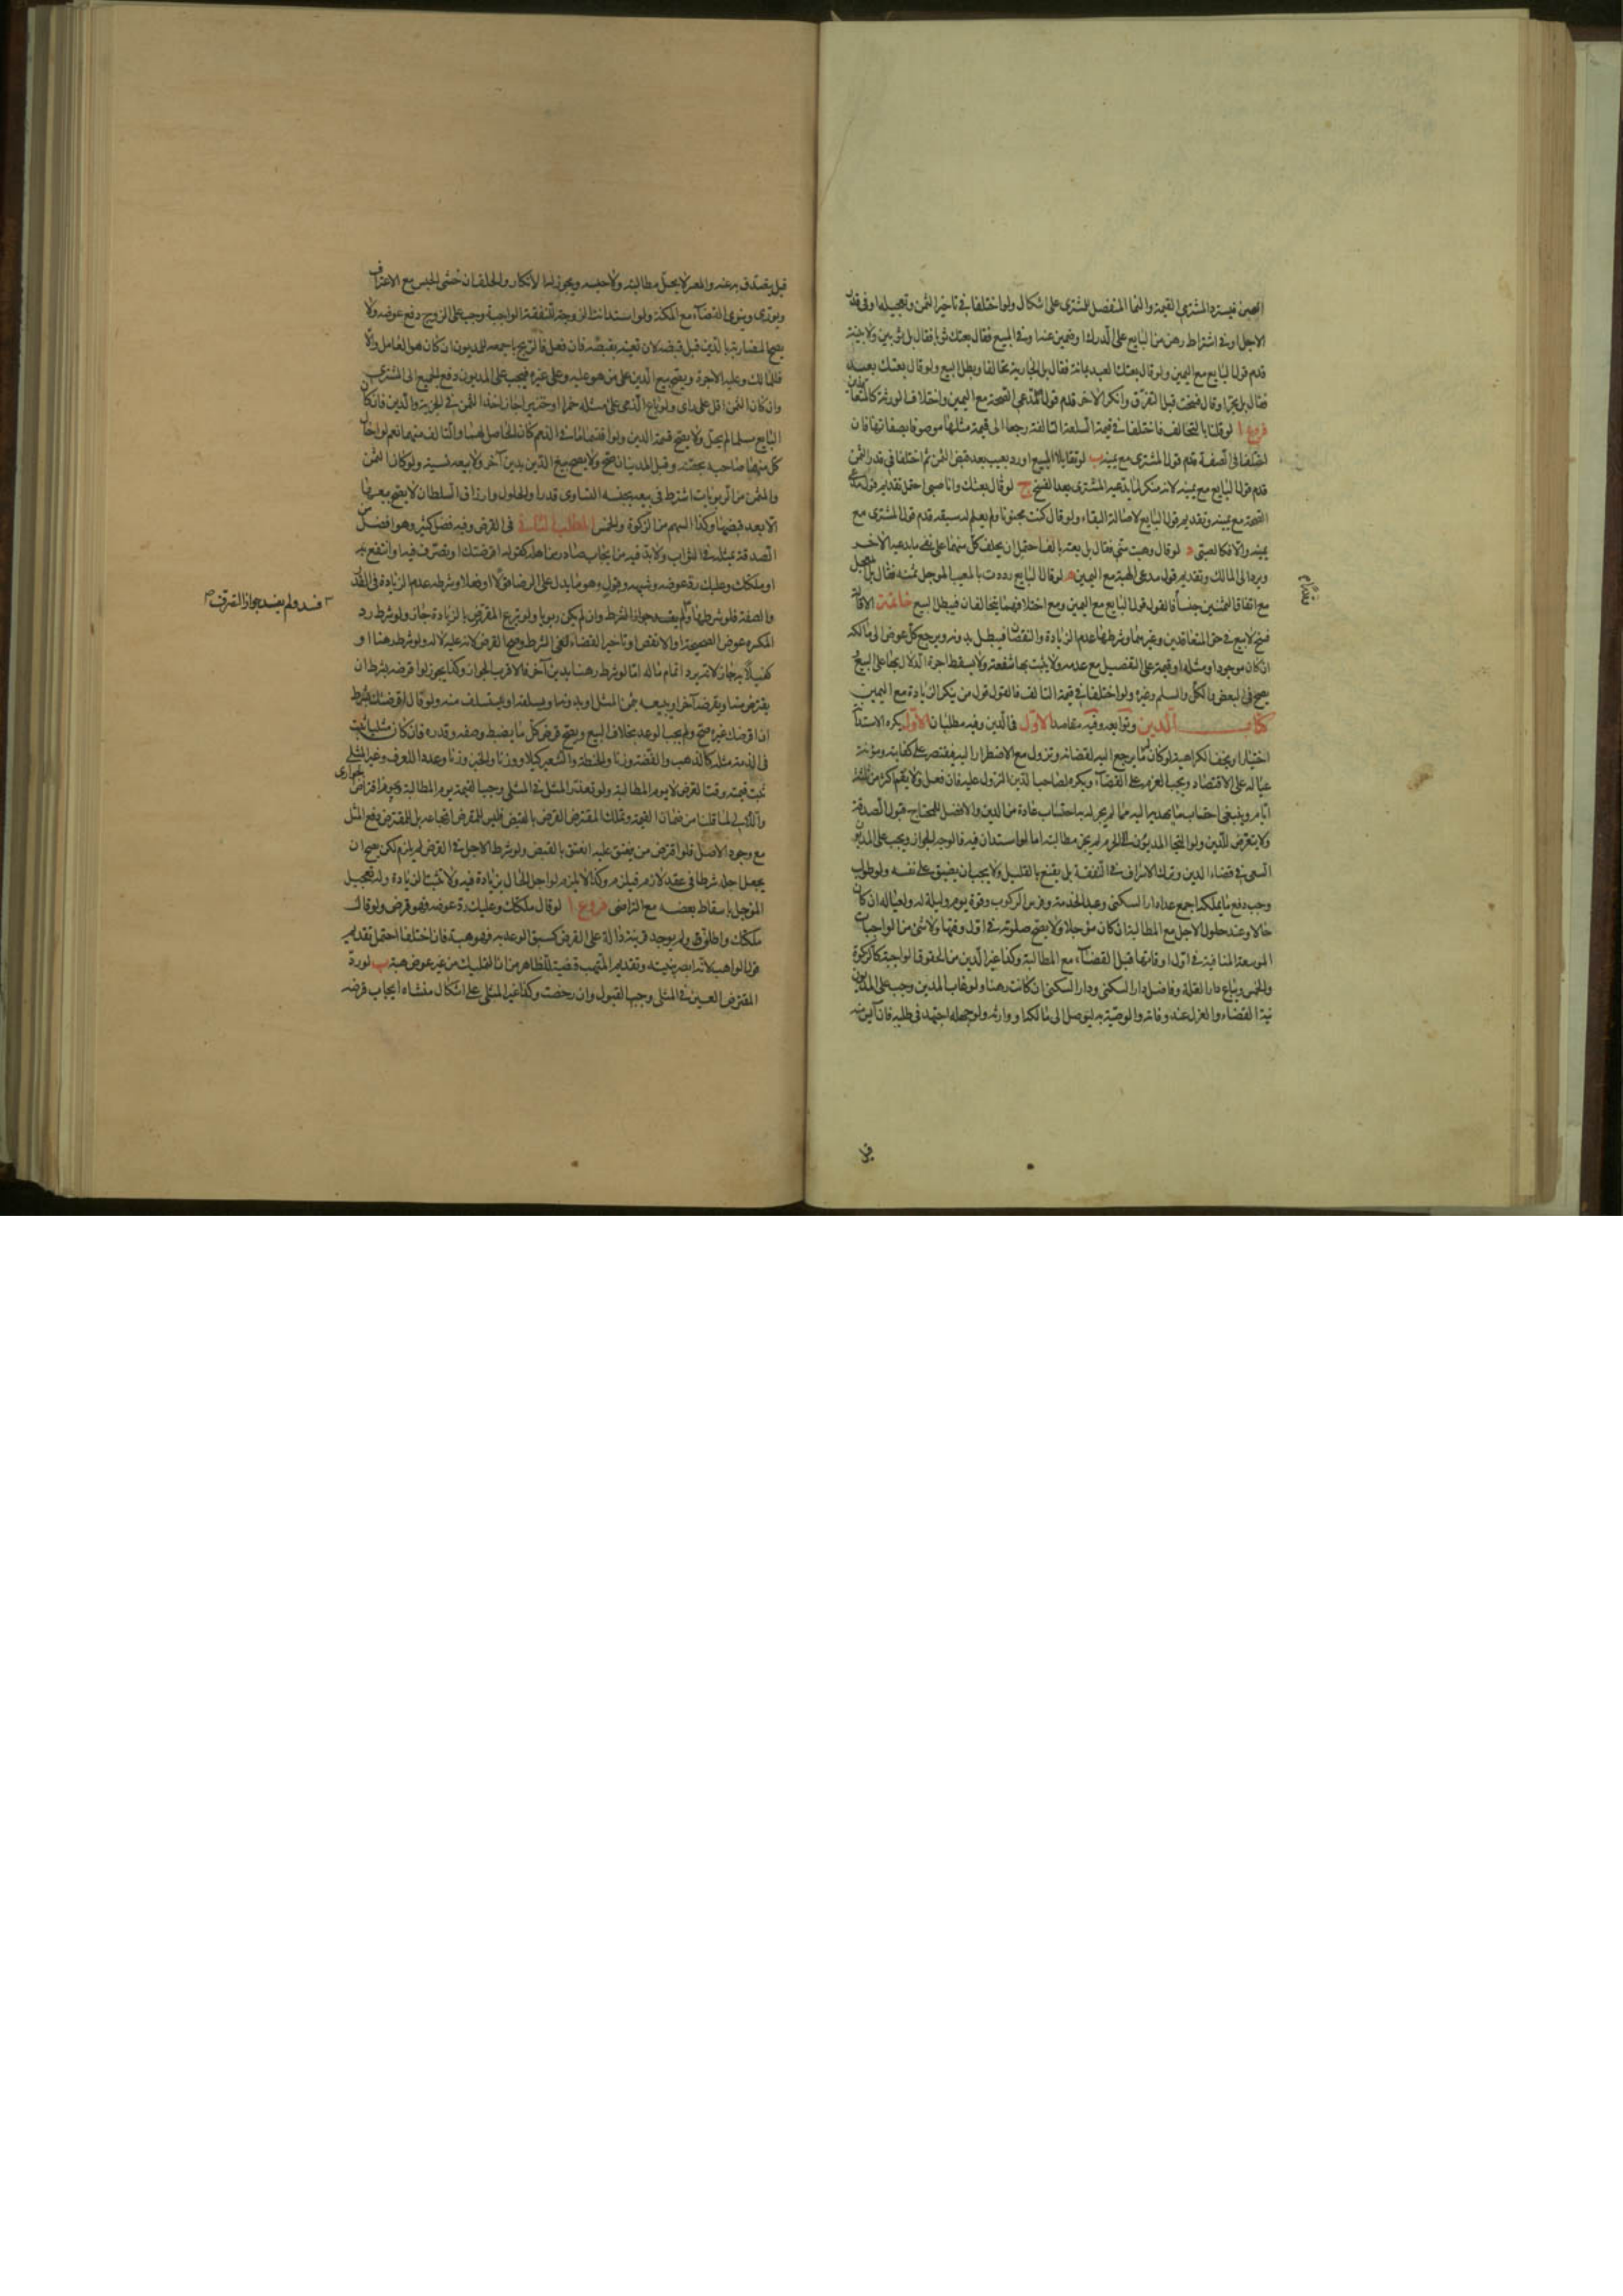 العين فيسترد المشتري القيمة والنما المنفصل للمشتري على اشكال ولو اختلفا في تاخير الثمن وتعجيله او في قدر
الاجل او في اشتراط رهن من البايع على الدرك او ضمين عنه او في المبيع فقال بعتك ثوبا فقال بل ثوبين ولا بينة
قدم قول البايع مع اليمين ولو قال بعتك العبد بمائة فقال بل الجارية تحالفا وبطل البيع ولو قال بعتك بعبد
فقال بل بحر او قال فسخت قبل التفرق وانكر الاخر قدم قول مدعي الصحة مع اليمين واختلاف الورثة كالمتعاقدين
فروع ا لو قلنا بالتحالف فاختلفا في قيمة السلعة التالفة رجعا الى قيمة مثلها موصوفا بصفاتها فان
اختلفا في الصفة قدم قول المشتري مع يمينه ب لو تقايلا المبيع او رد بعيب بعد قبض الثمن ثم اختلفا في قدر الثمن
قدم قول البايع مع يمينه لانه منكر لما يدعيه المشتري بعد الفسخ ج لو قال بعتك وانا صبي احتمل تقديم قول مدعي
الصحة مع يمينه وتقديم قول البايع لاصالة البقاء ولو قال كنت مجنونا ولم يعلم له سبقه قدم قول المشتري مع
يمينه والا فكالصبي د لو قال وهبت مني فقال بل بعته بالف احتمل ان يحلف كل منهما على نفي ما يدعيه الاخر
ويرد الى المالك وتقديم قول مدعي الهبة مع اليمين ه لو قال البايع رددت بالمعيب المؤجل ثمنه فقال بل المعجل
مع اتفاق الثمنين جنسا فالقول قول البايع مع اليمين ومع اختلافهما يتحالفان فيبطل البيع خاتمة الاقالة
فسخ لا بيع في حق المتعاقدين وغيرهما وشرطها عدم الزيادة والنقصان فيبطل بدونه ويرجع كل عوض الى مالكه
ان كان موجودا ومثله او قيمته على التفصيل مع عدمه ولا يثبت بها شفعة ولا يسقط اجرة الدلال بها على البيع
يصح في البعض والكل والسلم وغيره ولو اختلفا في قيمة التالف فالقول قول من ينكر الزيادة مع اليمين
كتاب الدين وتوابعه وفيه مقاصد الاول في الدين وفيه مطلبان الاول يكره الاستدانة
اختيارا ويخف الكراهية لو كان له ما يرجع اليه لقضائه وتزول مع الاضطرار اليه فيقتصر على كفايته ومؤنة
عياله على الاقتصاد ويجب العزم على القضاء ويكره لصاحب الدين النزول عليه فان فعل فلا يقم اكثر من ثلثة
ايام وينبغي احتساب ما يهديه اليه مما لم يجر له به احتساب عادة من الدين والافضل للمحتاج قبول الصدقة
ولا يتعرض للدين ولو التجا المديون الى الحرم لم يجز مطالبته اما لو استدان فيه فالوجه الجواز ويجب على المديون
السعي في قضاء الدين وترك الاسراف في النفقة بل يقنع بالقليل ولا يجب ان يضيق على نفسه ولو طولب
وجب دفع ما يملكه اجمع عدا دار السكنى وعبد الخدمة وفرس الركوب وقوت يوم وليلة له ولعياله ان كان
حالا وعند حلول الاجل مع المطالبة ان كان مؤجلا ولا يصح صلوته في اول وقتها ولا شيء من الواجبات
الموسعة المنافية في اول اوقاتها قبل القضاء مع المطالبة وكذا غير الدين من الحقوق الواجبة كالزكوة
والخمس ويباع دار الغلة وفاضل دار السكنى ودار السكنى ان كانت رهنا ولو غاب المدين وجب على المديون
نية القضاء والعزل عند وفاته والوصية به ليوصل الى مالكه او وارثه ولو جهله اجتهد في طلبه فان آيس منه
قيل يتصدق به عنه والمعسر لا يحل مطالبته ولا حبسه ويجوز له الانكار والحلف ان خشي الحبس مع الاعتراف
ويوري وينوي القضاء مع المكنة ولو استدانت الزوجة النفقة الواجبة وجب على الزوج دفع عوضه ولا
يصح المضاربة بالدين قبل قبضه لان تعينه بقبضه فان فعل فالربح باجمعه للمديون ان كان هو العامل والا
فللمالك وعليه الاجرة ويصح بيع الدين على من هو عليه وعلى غيره فيجب على المديون دفع الجميع الى المشتري
وان كان الثمن اقل على راى ولو باع الذمي على مثله خمرا او خنزيرا جاز اخذ الثمن في الجزية والدين فان كان
البايع مسلما لم يحل ولا يصح قسمة الدين ولو اقتسما ما في الذمم كان الحاصل لهما والتالف منهما نعم لو احال
كل منهما صاحبه بحصته وقبل المدينان صح ولا يصح بيع الدين بدين آخر ولا بيعه نسية ولو كان الثمن
والمثمن من الربويات اشترط في بيعه بجنسه التساوي قدرا والحلول وارزاق السلطان لا يصح بيعها
الا بعد قبضها وكذا السهم من الزكوة والخمس المطلب الثاني في القرض وفيه فضل كثير وهو افضل من
الصدقة بمثله في الثواب ولا بد فيه من ايجاب صادر من اهله كقوله اقرضتك او تصرف فيه او انتفع به
او ملكتك وعليك رد عوضه وشبهه وقبول وهو ما يدل على الرضا قولا او فعلا وشرطه عدم الزيادة في القدر
والصفة فلو شرطها ولم يفد جواز الشرط وان لم يكن ربويا ولو تبرع المقترض بالزيادة جاز ولو شرط رد
المكسرة عوض الصحيحة او الانقص او تاخير القضاء لغى الشرط وصح القرض لانه عليه لا له ولو شرط رهنا او
كفيلا به جاز لانه يرد اتمام ماله اما لو شرط رهنا بدين آخر فالاقرب الجواز وكذا يجوز لو اقرضه بشرط ان
يقترض منه او يقرضه آخر او يبيعه بثمن المثل او بدونه او يسلفه او يستسلف منه ولو قال اقرضتك بشرط
ان اقرضك غيره صح ولم يجب الوعد بخلاف البيع ويصح قرض كل ما يضبط وصفه وقدره فان كان مثليا ثبت
في الذمة مثله كالذهب والفضة وزنا والحنطة والشعير كيلا ووزنا والخبز وزنا وعددا للعرف وغير المثلي
ثبت قيمته وقت القرض لا يوم المطالبة ولو تعذر المثل في المثلي وجب القيمة يوم المطالبة ويجوز اقتراض الجواري
واللآلي لما قلنا من ضمان القيمة ويملك المقترض القرض بالقبض فليس للمقرض ارتجاعه بل للمقترض دفع المثل
مع وجود الاصل فلو اقترض من ينعتق عليه انعتق بالقبض ولو شرط الاجل في القرض لم يلزم لكن يصح ان
يجعل اجله شرطا في عقد لازم فيلزم وكذا لا يلزم لو اجل الحال بزيادة فيه ولا تثبت الزيادة وله تعجيل
المؤجل باسقاط بعضه مع التراضي فروع ا لو قال ملكتك وعليك رد عوضه فهو قرض ولو قال
ملكتك واطلق ولم يوجد قرينة دالة على القرض كسبق الوعد به فهو هبة فان اختلفا احتمل تقديم
قول الواهب لانه ابصر بنيته وتقديم المتهب قضية للظاهر من ان التمليك من غير عوض هبة ب لو رد
المقترض العين في المثلي وجب القبول وان رخصت وكذا غير المثلي على اشكال منشاه ايجاب قرضه
فسد ولم يفد جواز التصرف